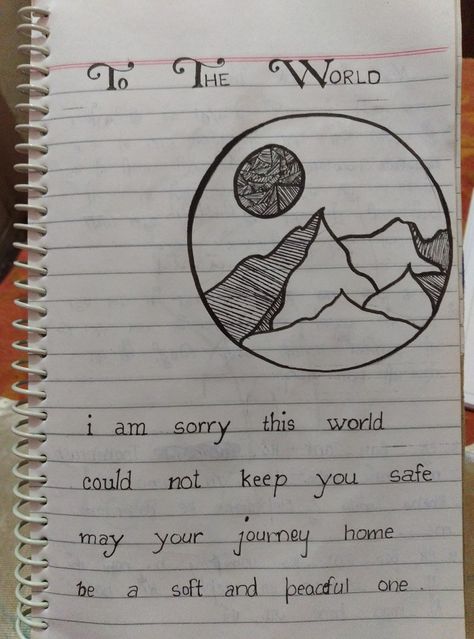 To The World
i am sorry this world
could not keep you safe
may your journey home
be a soft and peaceful one.